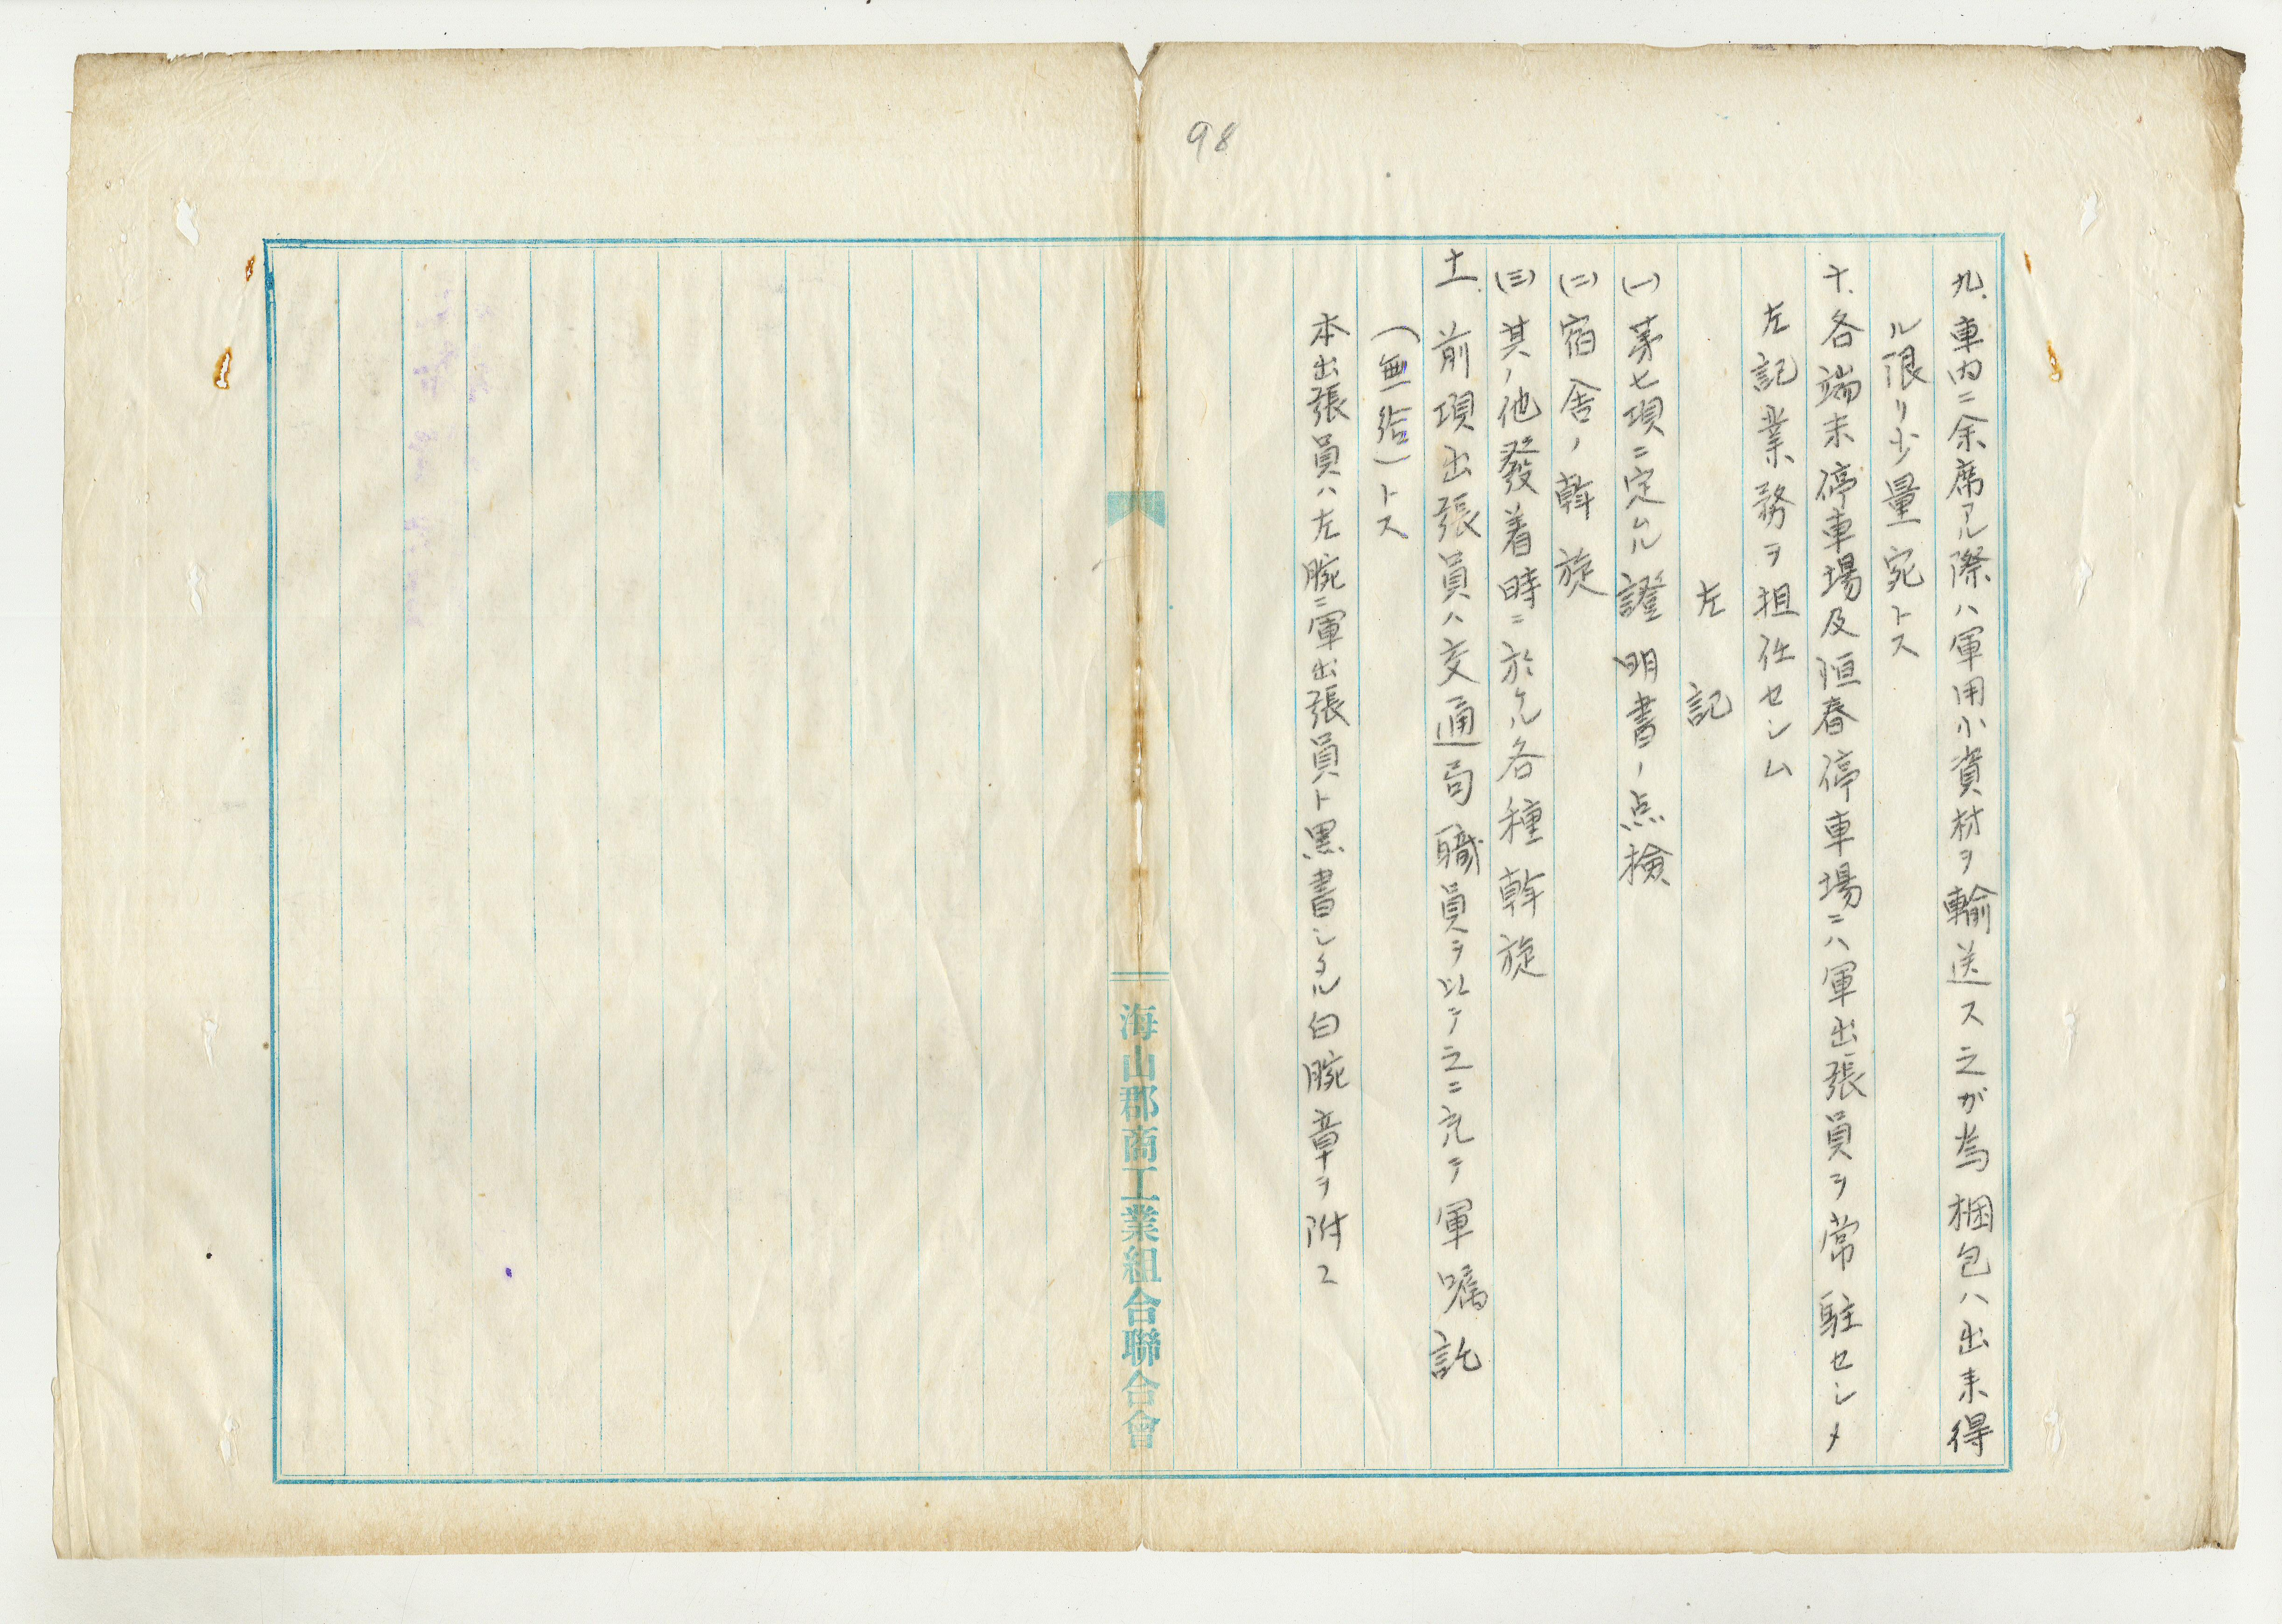 98
九、車内ニ余席アル際ハ軍用小資材ヲ輸送ス之が為梱包ハ出来得
ル限リ少量宛トス
十、各端末停車場及恒春停車場ニハ軍出張員ヲ常駐セシメ
左記業務ヲ担任セシム
左記
(一)第七項ニ定ムル證明書ノ点検
(二)宿舎ノ斡旋
(三)其ノ他發着時ニ於ケル各種斡旋
十一、前項出張員ハ交通局職員ヲ以テ之ニ充テ軍嘱託
(無給)トス
本出張員ハ左腕ニ軍出張員ト黒書シタル白腕章ヲ附ス
海山郡商工業組合聯合會